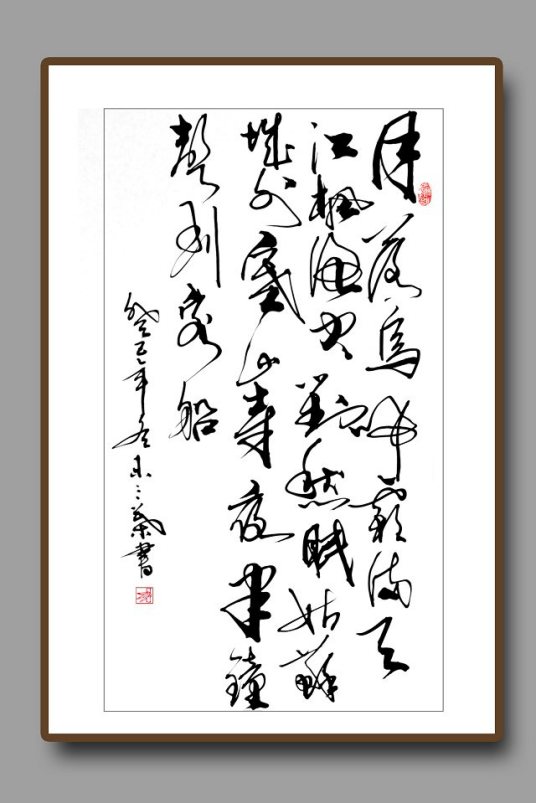 月落烏啼霜滿天
江楓漁火對愁眠姑蘇
城外寒山寺夜半鐘
聲到客船
癸巳年冬 書